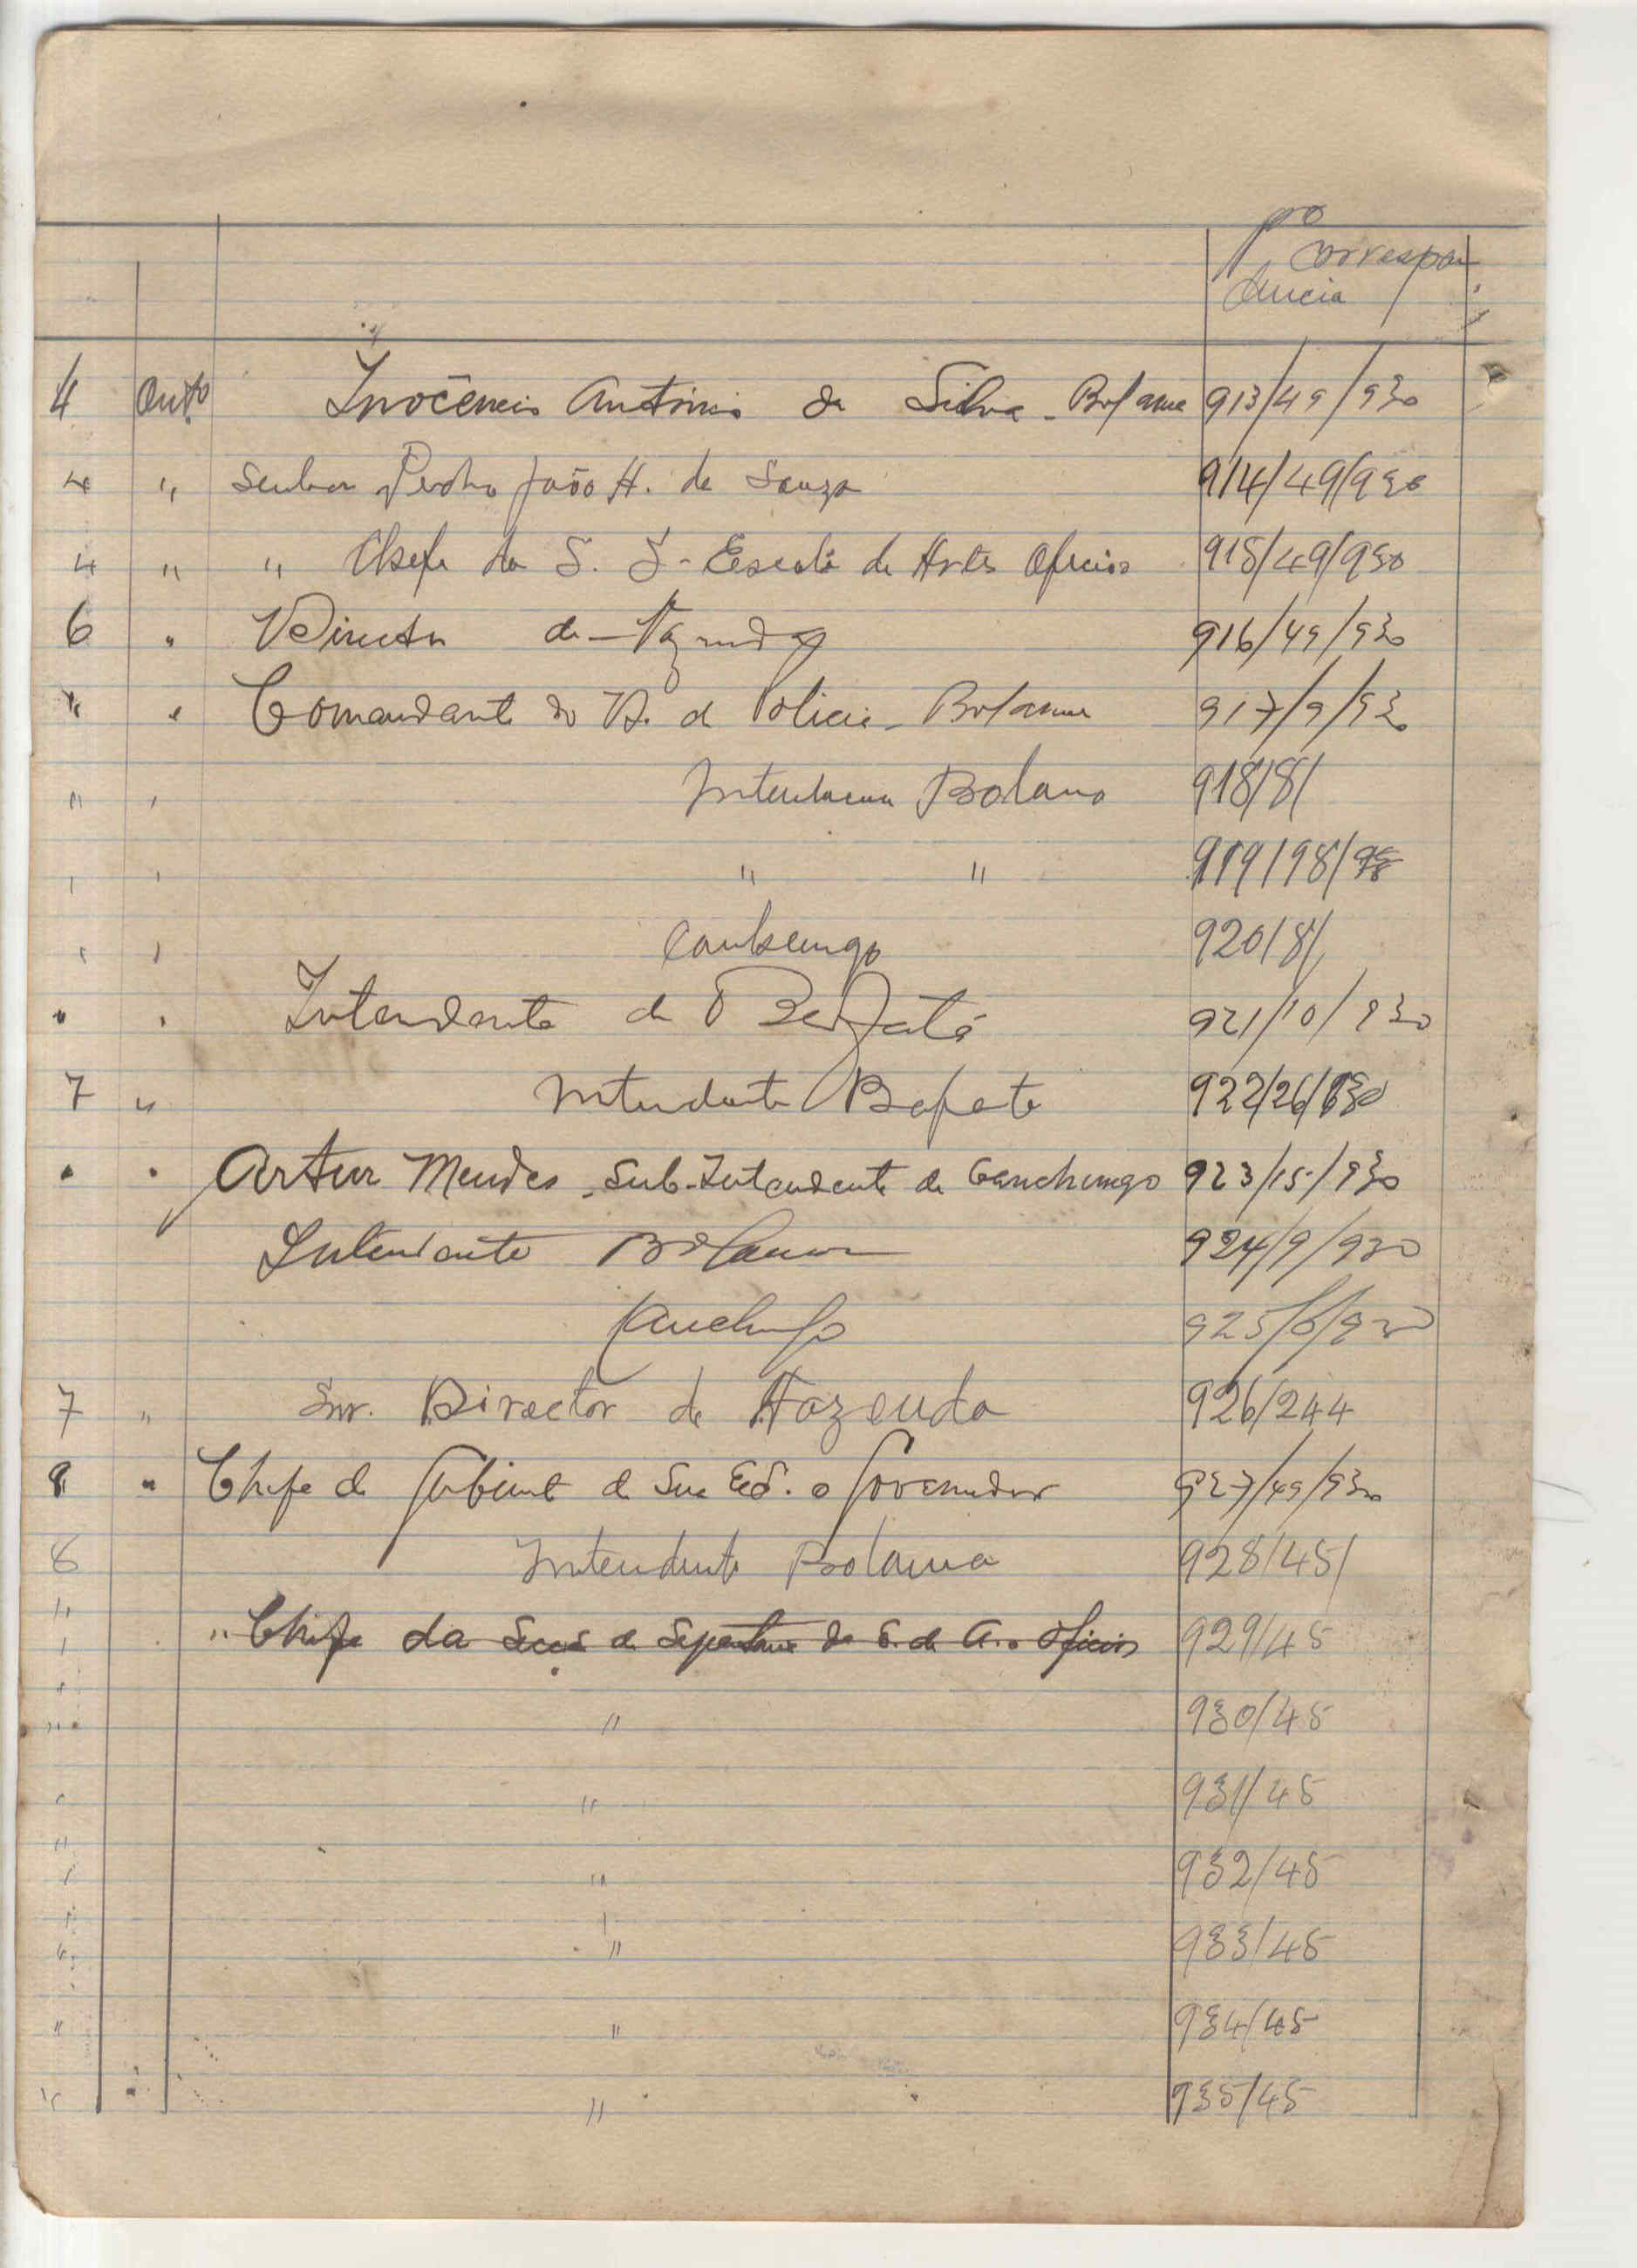 Correspon
dencia
4 Outo Inocêncio António da Silva - Bolama 913/49/930
4 " Senhor Pedro João H. de Souza 914/49/930
4 " " Chefe da S. S - Escola de Artes Oficios 915/49/930
6 " Director de Fazenda 916/49/930
" " Comandante do de Policia - Bolama 917/9/930
" " Intendencia Bolama 918/8/
" " " " 919/98/
" " Canhungo 920/8/
" " Intendente de Bafatá 921/10/930
7 " Intendente Bafata 922/26/930
" " Artur Mendes - Sub-Intendente de Canchungo 923/15/930
Intendente Bolama 924/9/930
Canchungo 925/6/930
7 " Snr. Director de Fazenda 926/244
8 " Chefe de Gabinete de Sua Exª. o Governador 927/49/930
8 Intendente Bolama 928/45/
" " Chefe da de da E. de A. e Oficios 929/45
" " 930/45
" " 931/45
" " 932/45
" " 933/45
" " 934/45
" " 935/45